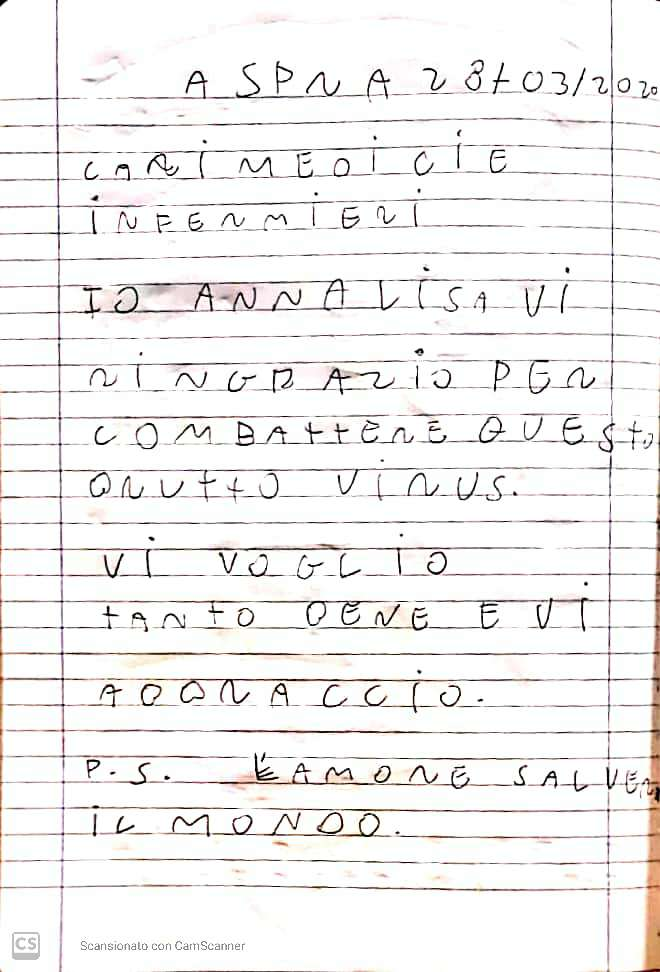 ASPRA 28/03/2020
CARI MEDICI E
INFERMIERI
IO ANNALISA VI
RINGRAZIO PER
COMBATTERE QUESTO
BRUTTO VIRUS.
VI VOGLIO
TANTO BENE E VI
ABBRACCIO.
P.S. L'AMORE SALVERÀ
IL MONDO.
CS Scansionato con CamScanner